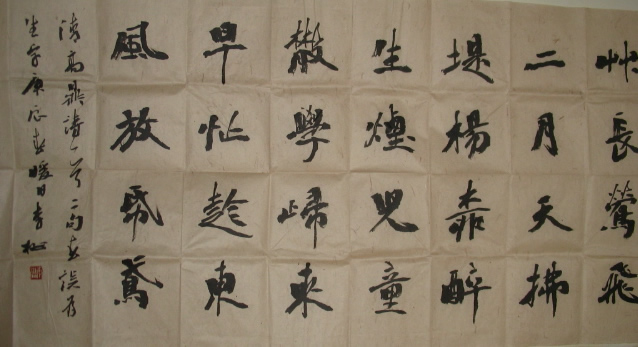 艸長鶯飛
二月天拂
堤楊醉
生煙兒童
散學歸來
早忙趁東
風放帋鳶
清高鼎詩一首二句春誤為
生字庚辰春暖日李